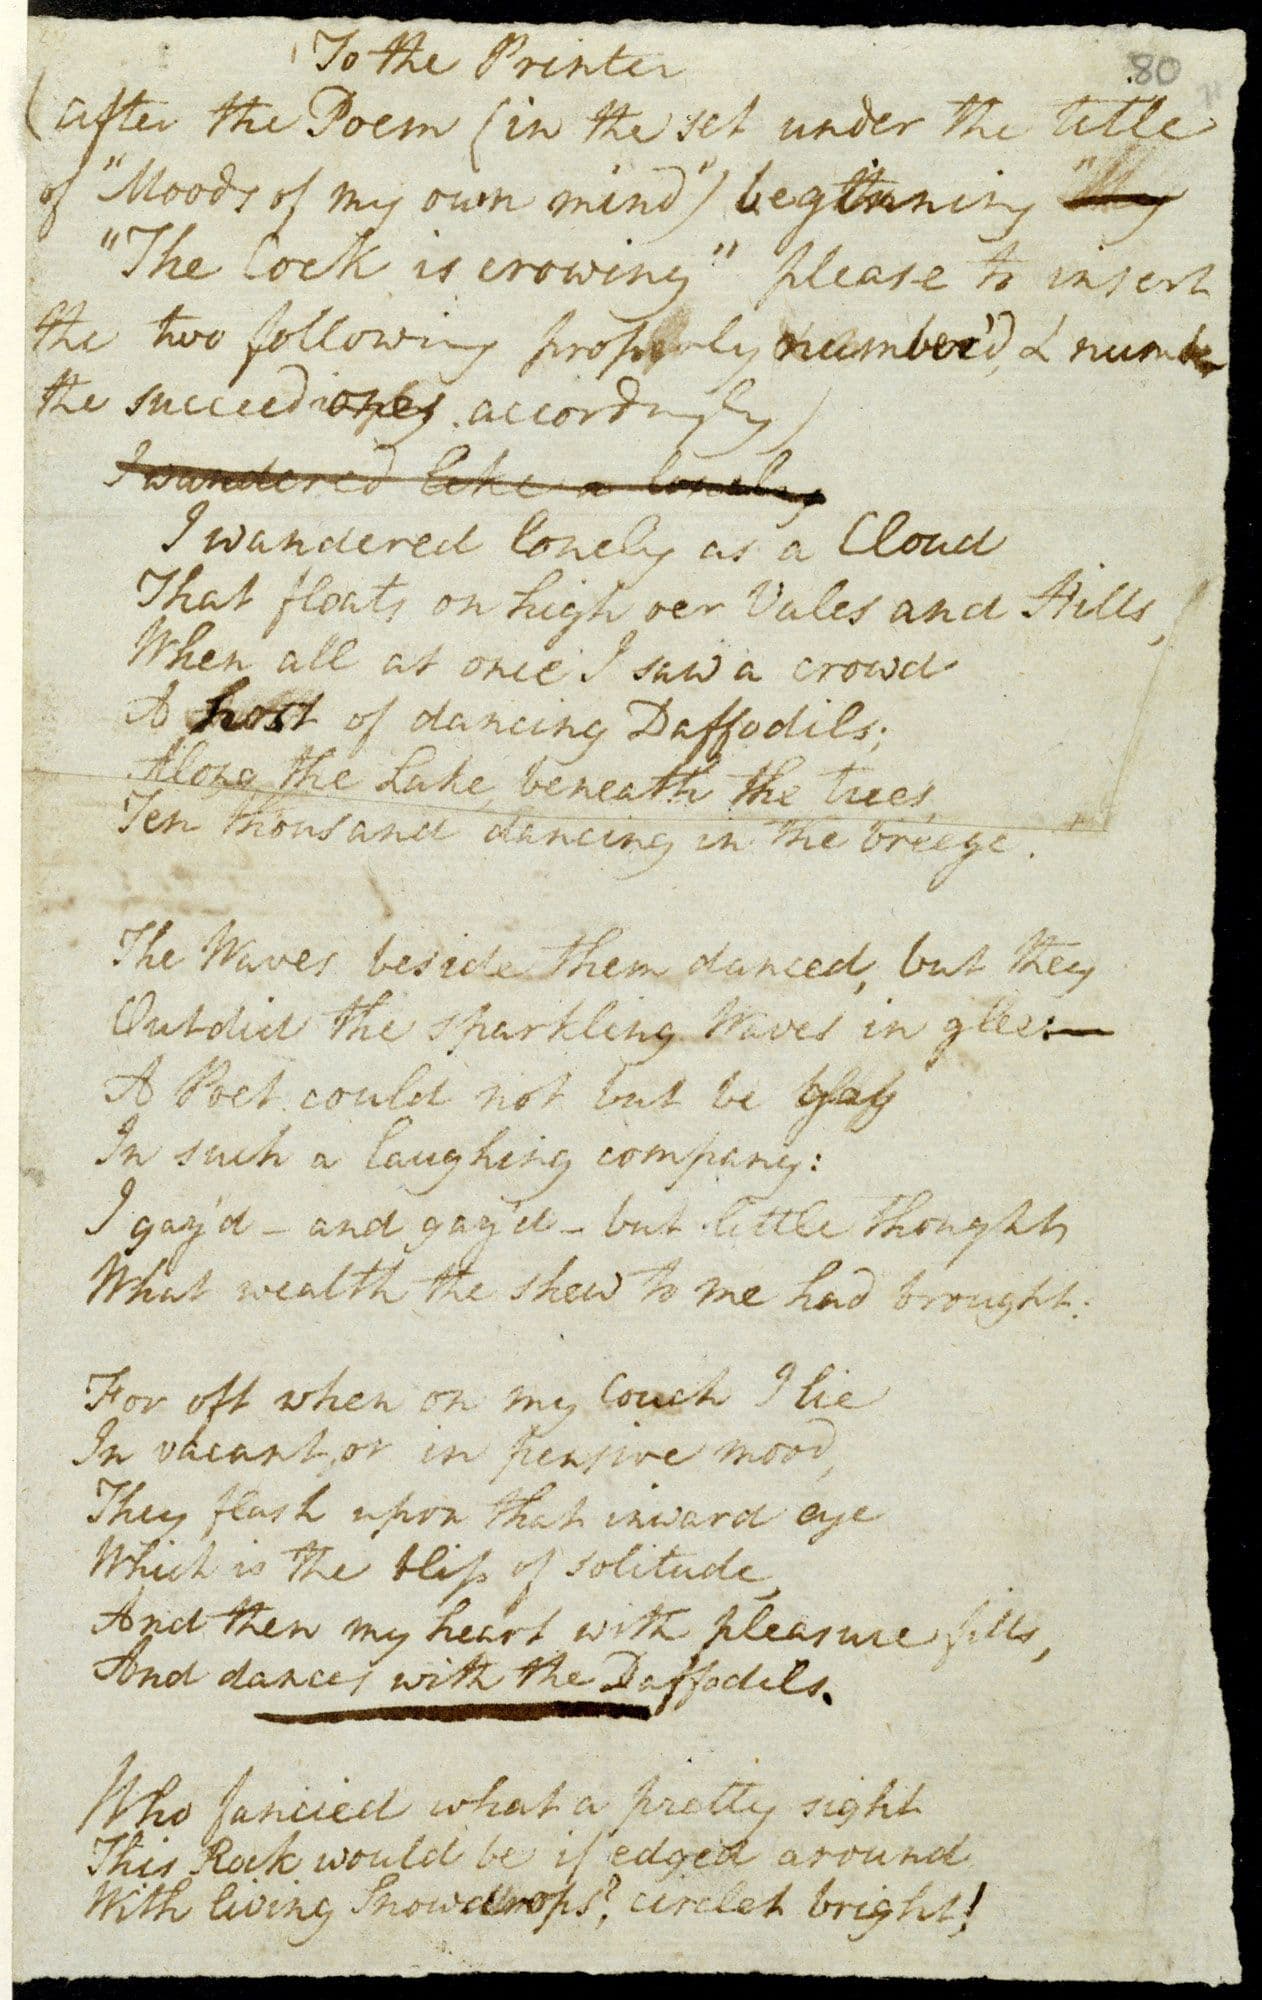 To the Printer
80
(after the Poem (in the set under the title
of "Moods of my own mind") beginning "My
"The Cock is crowing" please to insert
the two following properly number'd, & number
the succeeding ones accordingly)
I wandered like a lonely
I wandered lonely as a Cloud
That floats on high oer Vales and Hills,
When all at once I saw a crowd
A host of dancing Daffodils;
Along the Lake, beneath the trees,
Ten thousand dancing in the breeze.
The Waves beside them danced, but they
Outdid the sparkling Waves in glee:—
A Poet could not but be gay
In such a laughing company:
I gaz'd – and gaz'd – but little thought
What wealth the shew to me had brought:
For oft when on my Couch I lie
In vacant, or in pensive mood,
They flash upon that inward eye
Which is the bliss of solitude,
And then my heart with pleasure fills,
And dances with the Daffodils.
Who fancied what a pretty sight
This Rock would be if edged around
With living Snowdrops? circlet bright!